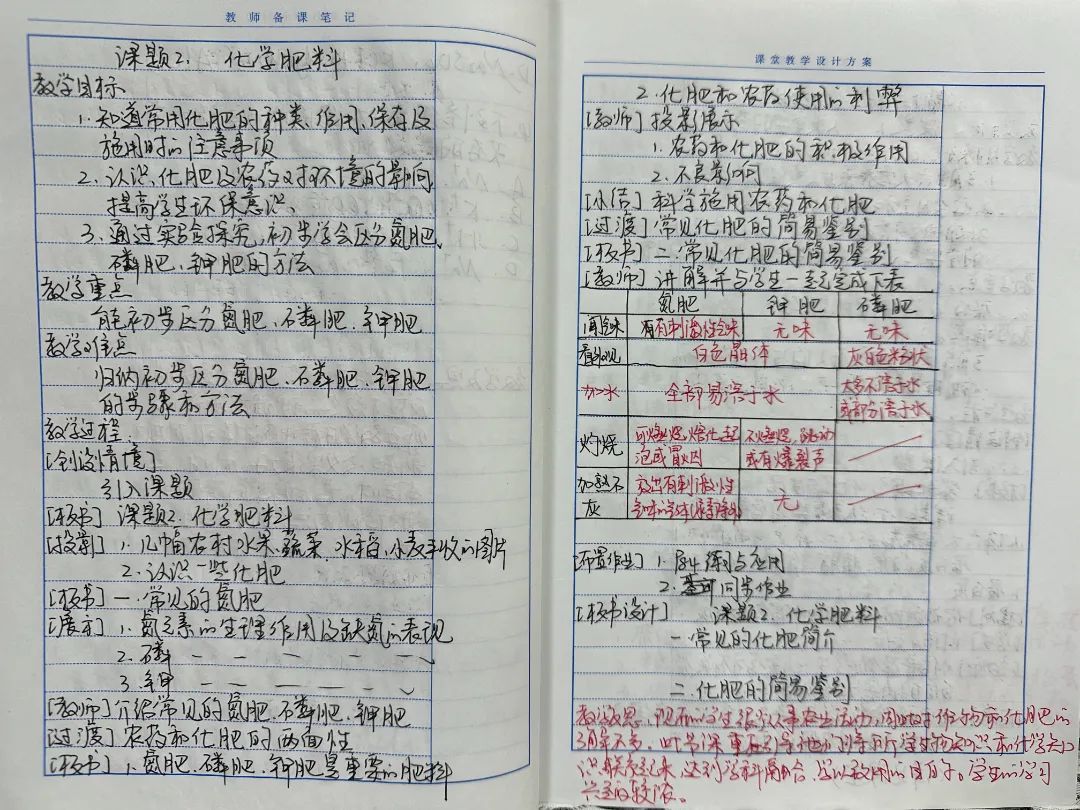 教师备课笔记
课题2. 化学肥料
教学目标
1. 知道常用化肥的种类、作用、保存及
施用时的注意事项
2. 认识化肥及农药对环境的影响,
提高学生环保意识、
3. 通过实验探究,初步学会区分氮肥、
磷肥、钾肥的方法
教学重点
能初步区分氮肥、磷肥、钾肥
教学难点
归纳初步区分氮肥、磷肥、钾肥
的步骤和方法
教学过程
[创设情境]
引入课题
[板书] 课题2. 化学肥料
[投影] 1. 几幅农村水果、蔬菜、水稻、小麦丰收的图片
2. 认识一些化肥
[板书] 一. 常见的氮肥
[展示] 1. 氮元素的生理作用及缺氮的表现
2. 磷 — — — — —
3. 钾 — — — — —
[教师] 介绍常见的氮肥、磷肥、钾肥
[过渡] 农药和化肥的两面性
[板书] 1. 氮肥、磷肥、钾肥是重要的肥料
课堂教学设计方案
2. 化肥和农药使用的利弊
[教师] 投影展示
1. 农药和化肥的积极作用
2. 不良影响
[小结] 科学施用农药和化肥
[过渡] 常见化肥的简易鉴别
[板书] 二. 常见化肥的简易鉴别
[教师] 讲解并与学生一起完成下表
氮肥 钾肥 磷肥
闻气味 有刺激性气味 无味 无味
看外观 白色晶体 灰白色粉状
加水 全部易溶于水 大多不溶于水
或部分溶于水
灼烧 可燃烧,熔化起 不燃烧,跳动
泡或冒烟 或有爆裂声
加熟石 放出有刺激性 无
灰 气味的气体(尿素除外)
[布置作业] 1. P84 练习与应用
2. 同步作业
[板书设计] 课题2. 化学肥料
一. 常见的化肥简介
二. 化肥的简易鉴别
教学反思: 现在的学生很少从事农业活动,因此对于作物和化肥的
了解不多。本节课重在引导他们将所学生物知识和化学知
识联系起来,达到学科融合、学以致用的目的。学生的学习
兴趣较浓。